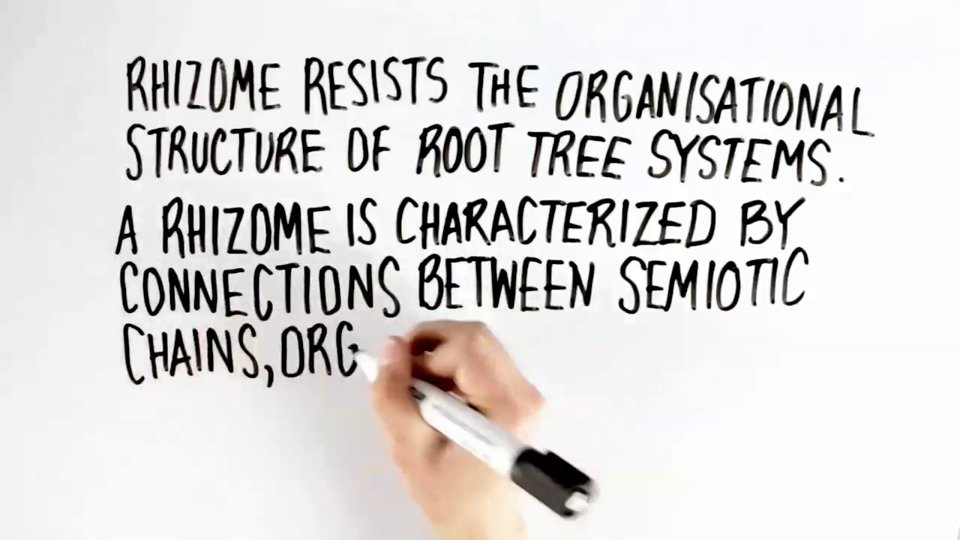 RHIZOME RESISTS THE ORGANISATIONAL
STRUCTURE OF ROOT TREE SYSTEMS.
A RHIZOME IS CHARACTERIZED BY
CONNECTIONS BETWEEN SEMIOTIC
CHAINS, ORG